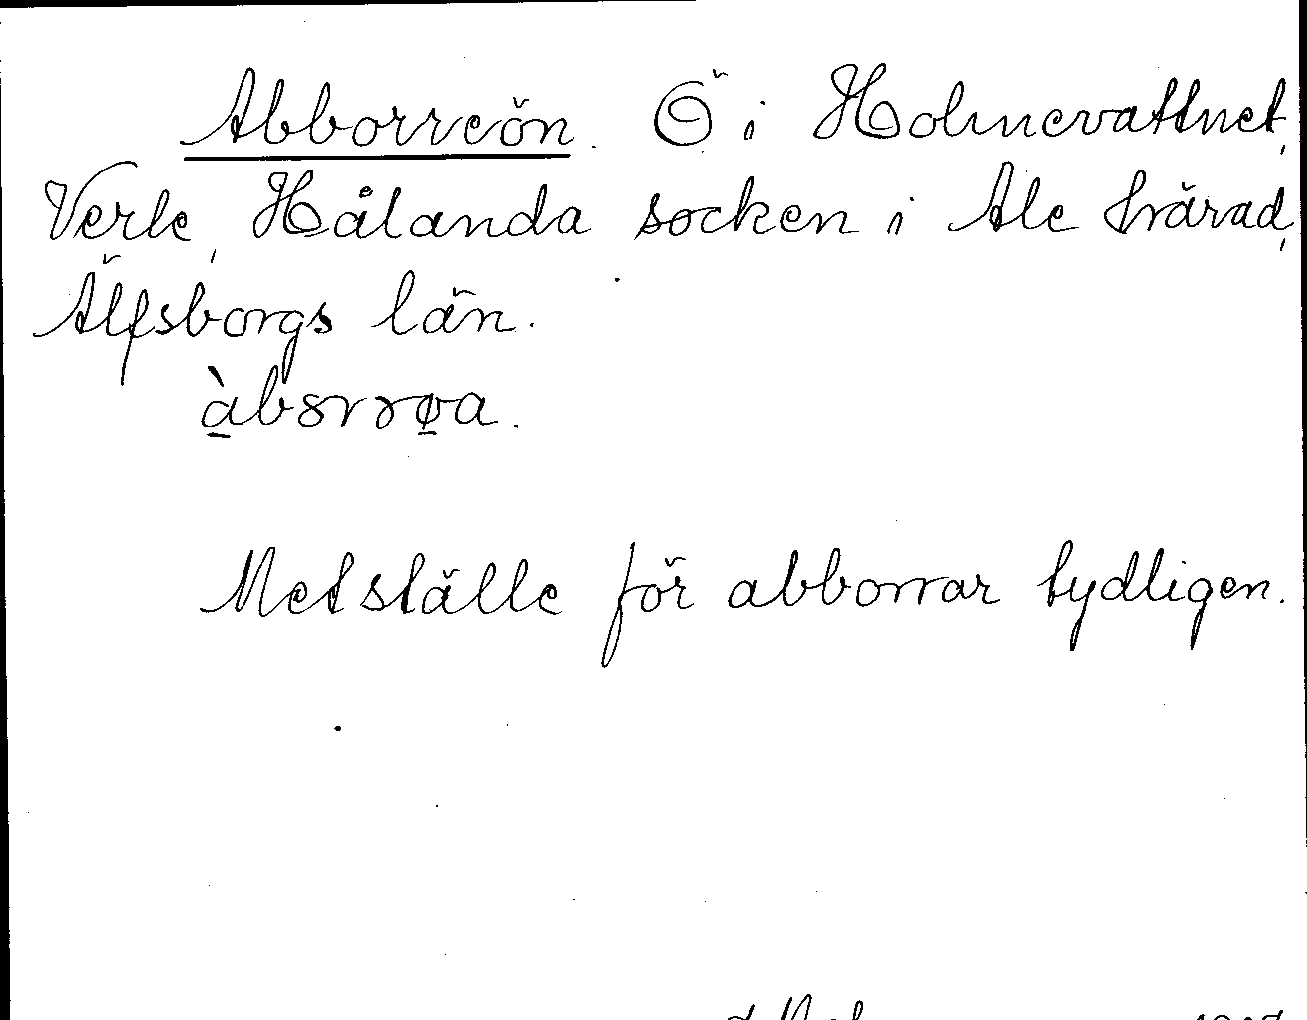 Abborreön. Ö i Holmevattnet,
Verle, Hålanda socken i Ale härad,
Älfsborgs län.
àbɤrrəøa.
Metställe för abborrar tydligen.